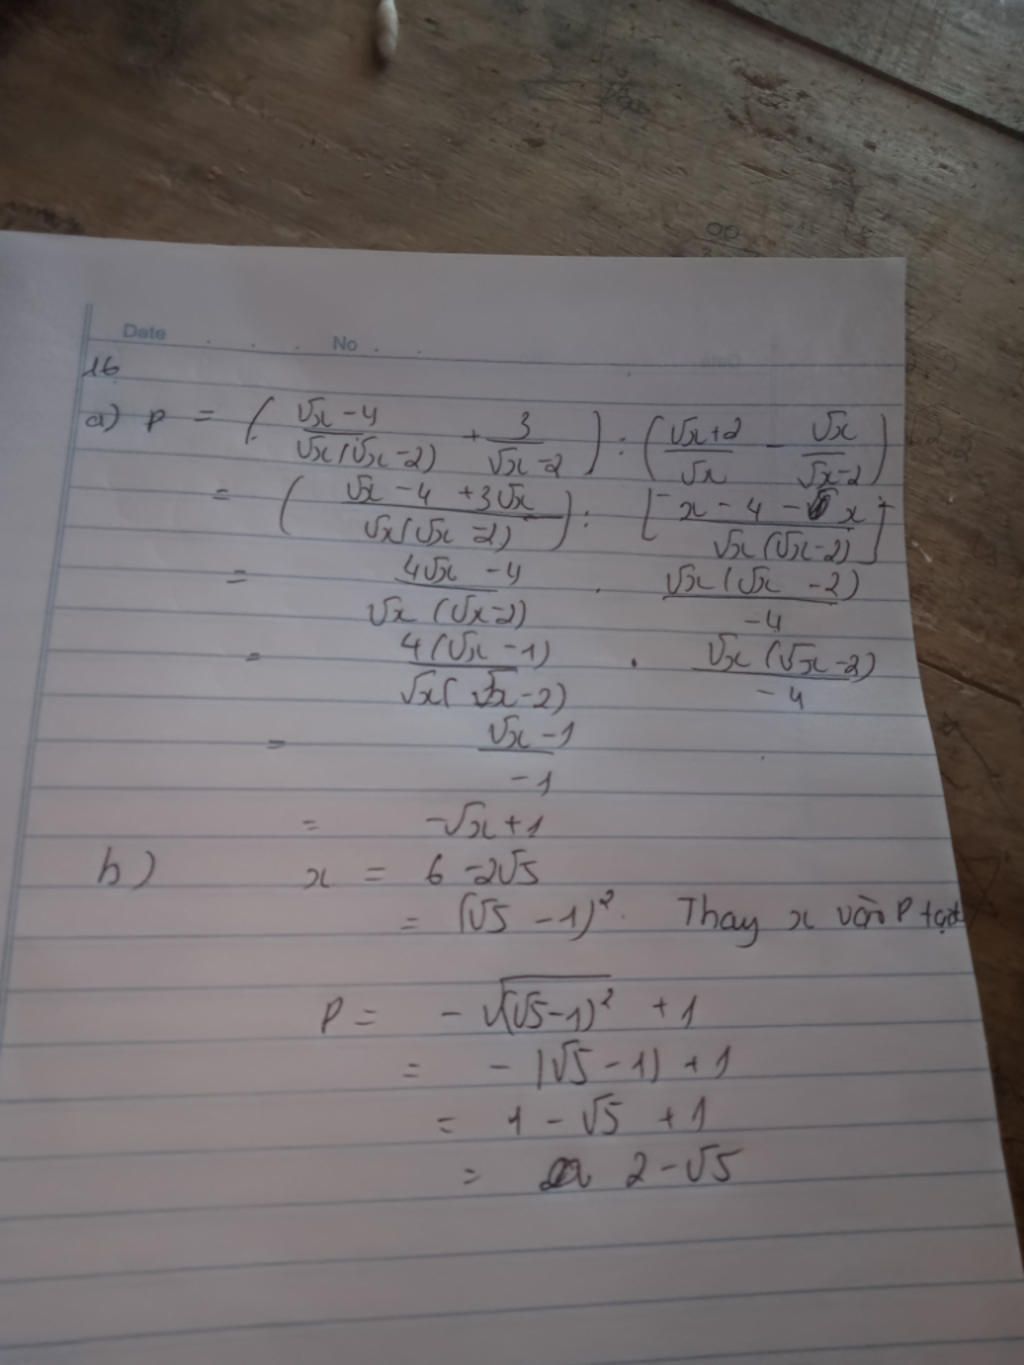 Date No
16
a) P = ( √x - 4 / √x(√x - 2) + 3 / √x - 2 ) : ( √x + 2 / √x - √x / √x - 2 )
= ( √x - 4 + 3√x / √x(√x - 2) ) : [ x - 4 - x / √x(√x - 2) ]
= 4√x - 4 / √x (√x - 2) . √x (√x - 2) / -4
= 4(√x - 1) / √x( √x - 2) . √x (√x - 2) / -4
= √x - 1 / -1
= -√x + 1
b) x = 6 - 2√5
= (√5 - 1)². Thay x vào P tađ
P = - √(√5 - 1)² + 1
= - |√5 - 1| + 1
= 1 - √5 + 1
= 2 - √5